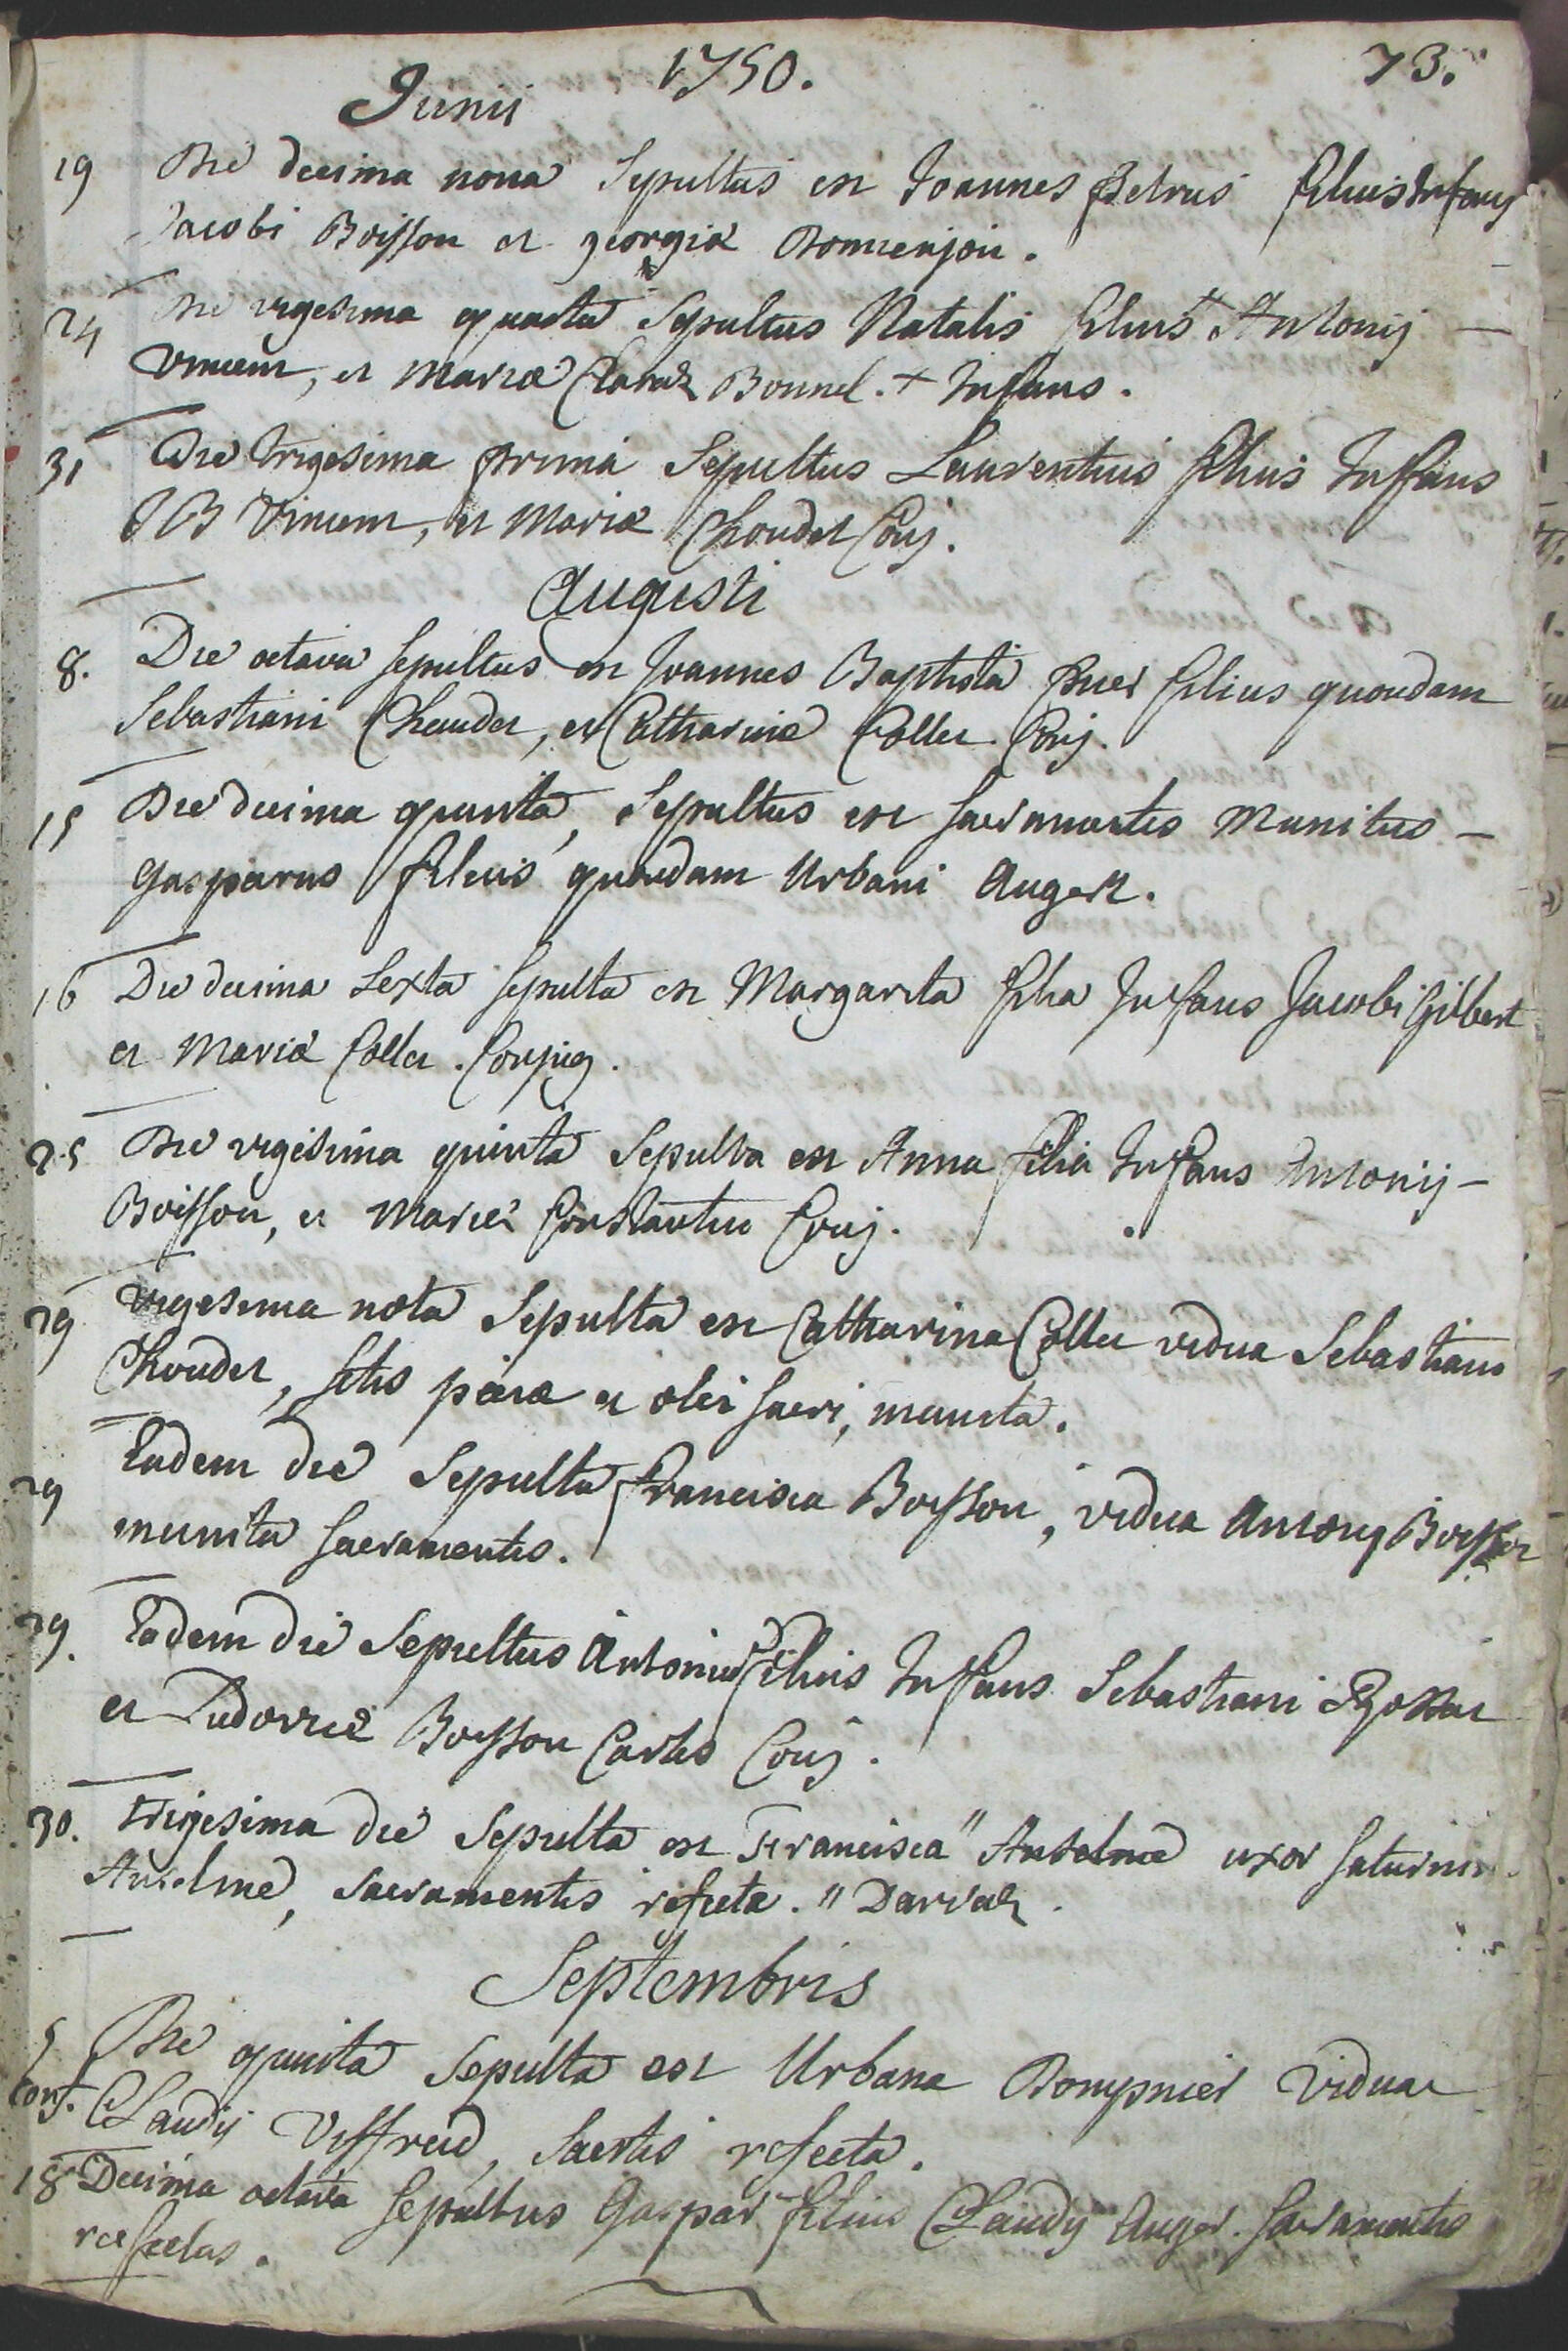 1750. 73.
Junii
19 Die decima nona Sepultus est Joannes Petrus filius Infans
Jacobi Boisson et georgiæ
24 Die vigesima quarta Sepultus Natalis filius + Antonij —
Vincent, et Mariæ Bonnel. + Infans.
31 Die trigesima prima Sepultus Laurentius filius Infans
JB Vincent, et Mariæ Choudet Conj.
Augusti
8. Die octava Sepultus est Joannes Baptista puer filius quondam
Sebastiani Choudet, et Catharinæ Collet Conj.
15 Die decima quinta, Sepultus est Sacramentis Munitus —
Gasparus filius quondam Urbani Augert.
16 Die decima Sexta Sepulta est Margarita filia Infans Jacobi Gilbert
et Mariæ Collet. Conjug.
25 Die vigesima quinta Sepulta est Anna filia Infans Antonij —
Boisson, et Mariæ Constantin Conj.
29 Vigesima nota Sepulta est Catharina Collet vidua Sebastiani
Choudet, Sctis et olei sacri, munita.
29 Eadem die Sepulta Francisca Boisson, vidua Antonij Boisson
munita Sacramentis.
29. Eadem die Sepultus Antonius filius Infans Sebastiani
et Ludovicæ Boisson Conj.
30. trigesima die Sepulta est Francisca " Anselme uxor Saturnini
Anselme, Sacramentis refecta. "
Septembris
5 Die quinta Sepulta est Urbana Bompnier Vidua
conf. Claudij Viffred, Sactis refecta.
18 Decima octava Sepultus Gaspar filius Claudij Auger. Sacramentis
refectus.